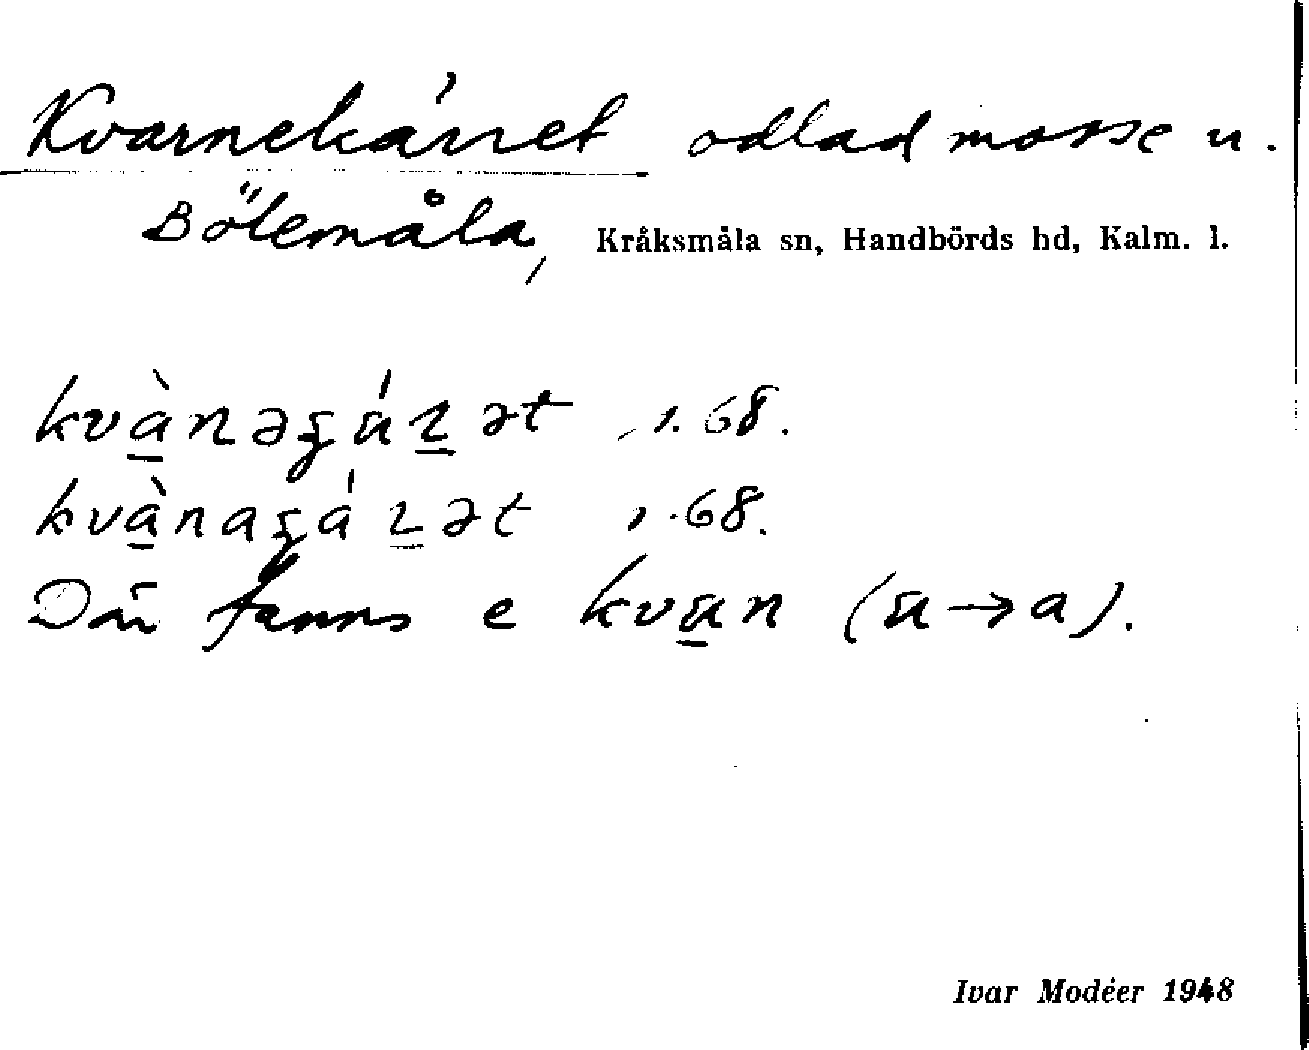 Kvarnekärret odlad mosse u.
Bölemåla, Kråksmåla sn, Handbörds hd, Kalm. l.
kvànəgäɽət, 1.68.
kvànagáɽət 1.68.
Där fanns e kvän (ä→a).
Ivar Modéer 1948